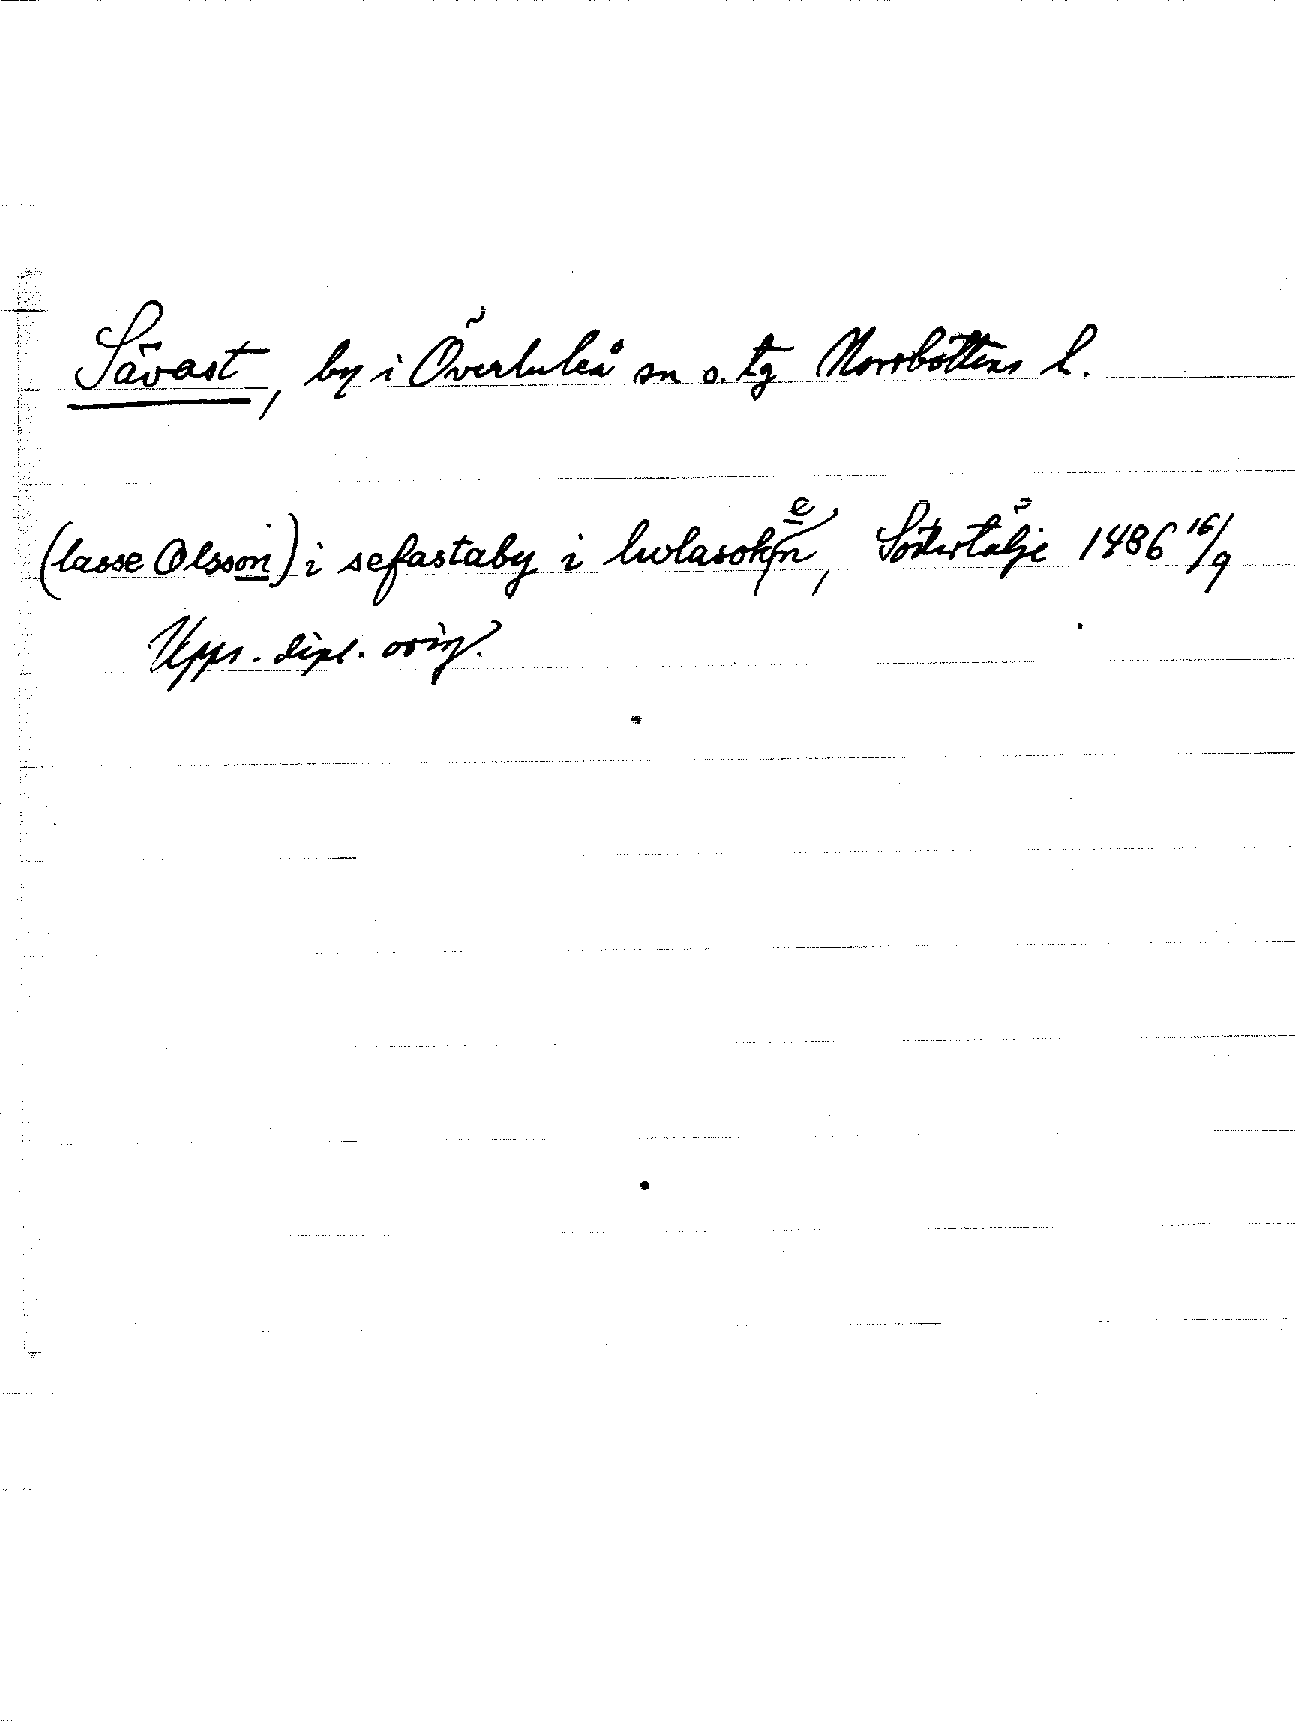 Sävast, by i Överluleå sn o. tg Norrbottens l.
(lasse Olsson) i sefastaby i lwlasoken, Södertälje 1486 16/9
Upps. dipl. orig.